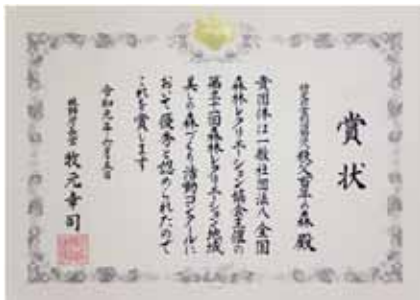 賞状
特定非営利活動法人 秩父百年の森 殿
貴団体は一般社団法人全国
森林レクリエーション協会主催の
森林レクリエーション地域
美しの森づくり活動コンクールに
おいて優秀と認められたので
これを賞します
令和元年
林野庁長官 牧元幸司